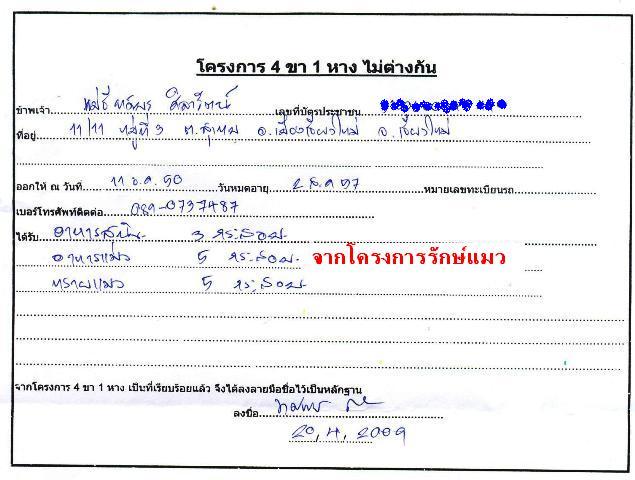 โครงการ 4 ขา 1 หาง ไม่ต่างกัน
ข้าพเจ้า แม่ชี เลขที่บัตรประชาชน
ที่อยู่ 11/11 หมู่ที่ 3 ต.สุเทพ อ.เมืองเชียงใหม่ จ.เชียงใหม่
ออกให้ ณ วันที่ 11 ธ.ค. 50 วันหมดอายุ 2 ส.ค 57 หมายเลขทะเบียนรถ
เบอร์โทรศัพท์ติดต่อ 089-0737487
ได้รับ อาหารสุนัข 3 กระสอบ
อาหารแมว 5 กระสอบ จากโครงการรักษ์แมว
ทรายแมว 5 กระสอบ
จากโครงการ 4 ขา 1 หาง เป็นที่เรียบร้อยแล้ว จึงได้ลงลายมือชื่อไว้เป็นหลักฐาน
ลงชื่อ
20, 4, 2009